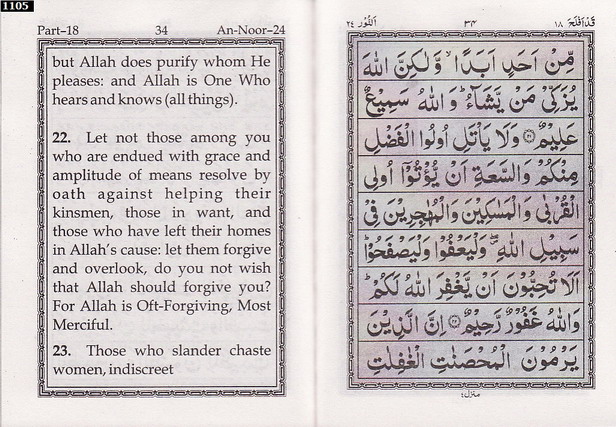 1105
Part-18 34 An-Noor-24
but Allah does purify whom He
pleases: and Allah is One Who
hears and knows (all things).
22. Let not those among you
who are endued with grace and
amplitude of means resolve by
oath against helping their
kinsmen, those in want, and
those who have left their homes
in Allah's cause: let them forgive
and overlook, do you not wish
that Allah should forgive you?
For Allah is Oft-Forgiving, Most
Merciful.
23. Those who slander chaste
women, indiscreet
قد افلح ١٨ ٣٤ النور ٢٤
مِّنْ اَحَدٍ اَبَدًا ۙ وَّلٰكِنَّ اللّٰهَ
يُزَكِّىْ مَنْ يَّشَآءُ ؕ وَاللّٰهُ سَمِيْعٌ
عَلِيْمٌ ﴿٢١﴾ وَلَا يَاْتَلِ اُولُوا الْفَضْلِ
مِنْكُمْ وَالسَّعَةِ اَنْ يُّؤْتُوْٓا اُولِى
الْقُرْبٰى وَالْمَسٰكِيْنَ وَالْمُهٰجِرِيْنَ فِىْ
سَبِيْلِ اللّٰهِ ۖ وَلْيَعْفُوْا وَلْيَصْفَحُوْا ؕ
اَلَا تُحِبُّوْنَ اَنْ يَّغْفِرَ اللّٰهُ لَكُمْ ؕ
وَاللّٰهُ غَفُوْرٌ رَّحِيْمٌ ﴿٢٢﴾ اِنَّ الَّذِيْنَ
يَرْمُوْنَ الْمُحْصَنٰتِ الْغٰفِلٰتِ
منزل ٤